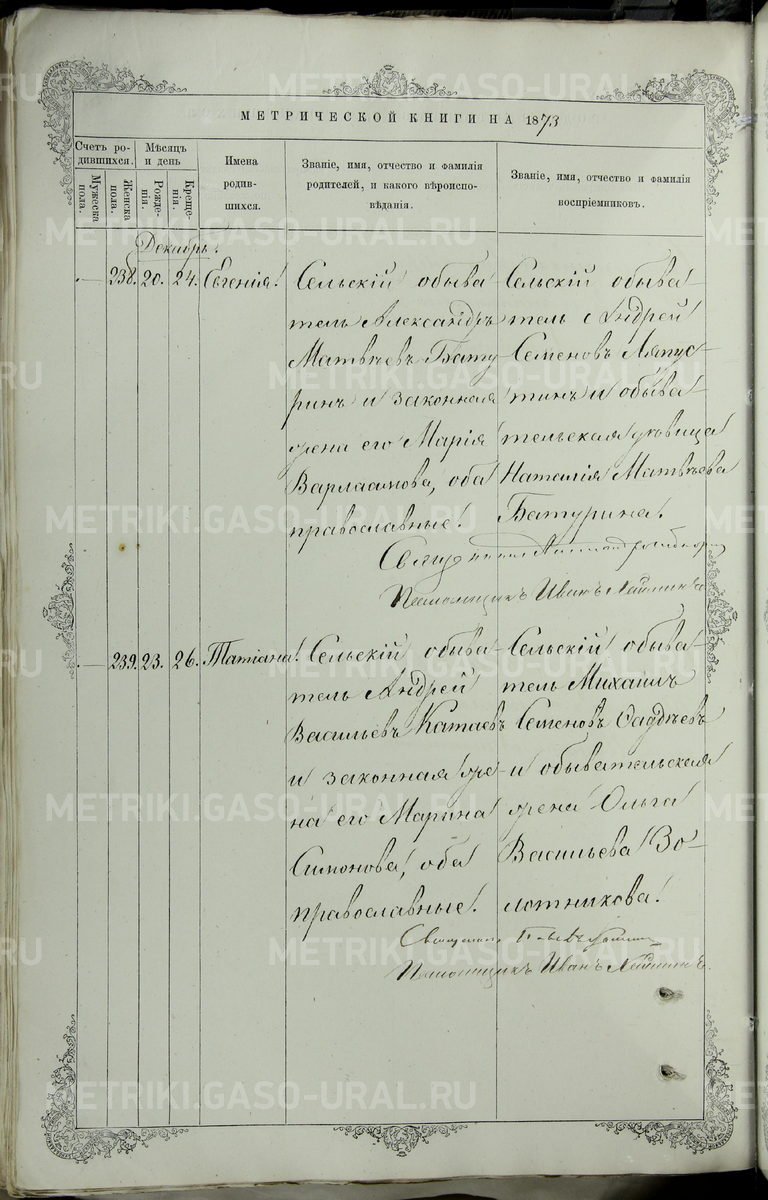 МЕТРИЧЕСКОЙ КНИГИ НА 1873
Счетъ ро-
дившихся.
Мѣсяцъ
и день
Имена
родив-
шихся.
Званіе, имя, отчество и фамилія
родителей, и какого вѣроиспо-
вѣданія.
Званіе, имя, отчество и фамилія
воспріемниковъ.
Мужеска
пола.
Женска
пола.
Рожде-
нія.
Креще-
нія.
Декабрь.
— 238. 20. 24. Евгенія.
Сельскій обыва-
тель Александръ
Матвѣевъ Бату
ринъ и законная
жена его Марія
Варлаамова, оба
православные.
Сельскій обыва-
тель Андрей
Семеновъ Ляпус-
тинъ и обыва-
тельская вдовица
Наталія Матвѣева
Батурина.
Священникъ
Иванъ
— 239. 23. 26. Татіана.
Сельскій обыва-
тель Андрей
Васильевъ Катаевъ
и законная же-
на его Марина
Симонова, оба
православные.
Сельскій обыва-
тель Михаилъ
Семеновъ Фадѣевъ
и обывательская
жена Ольга
Васильева Зо-
лотникова.
Священникъ
Иванъ
METRIKI.GASO-URAL.RU